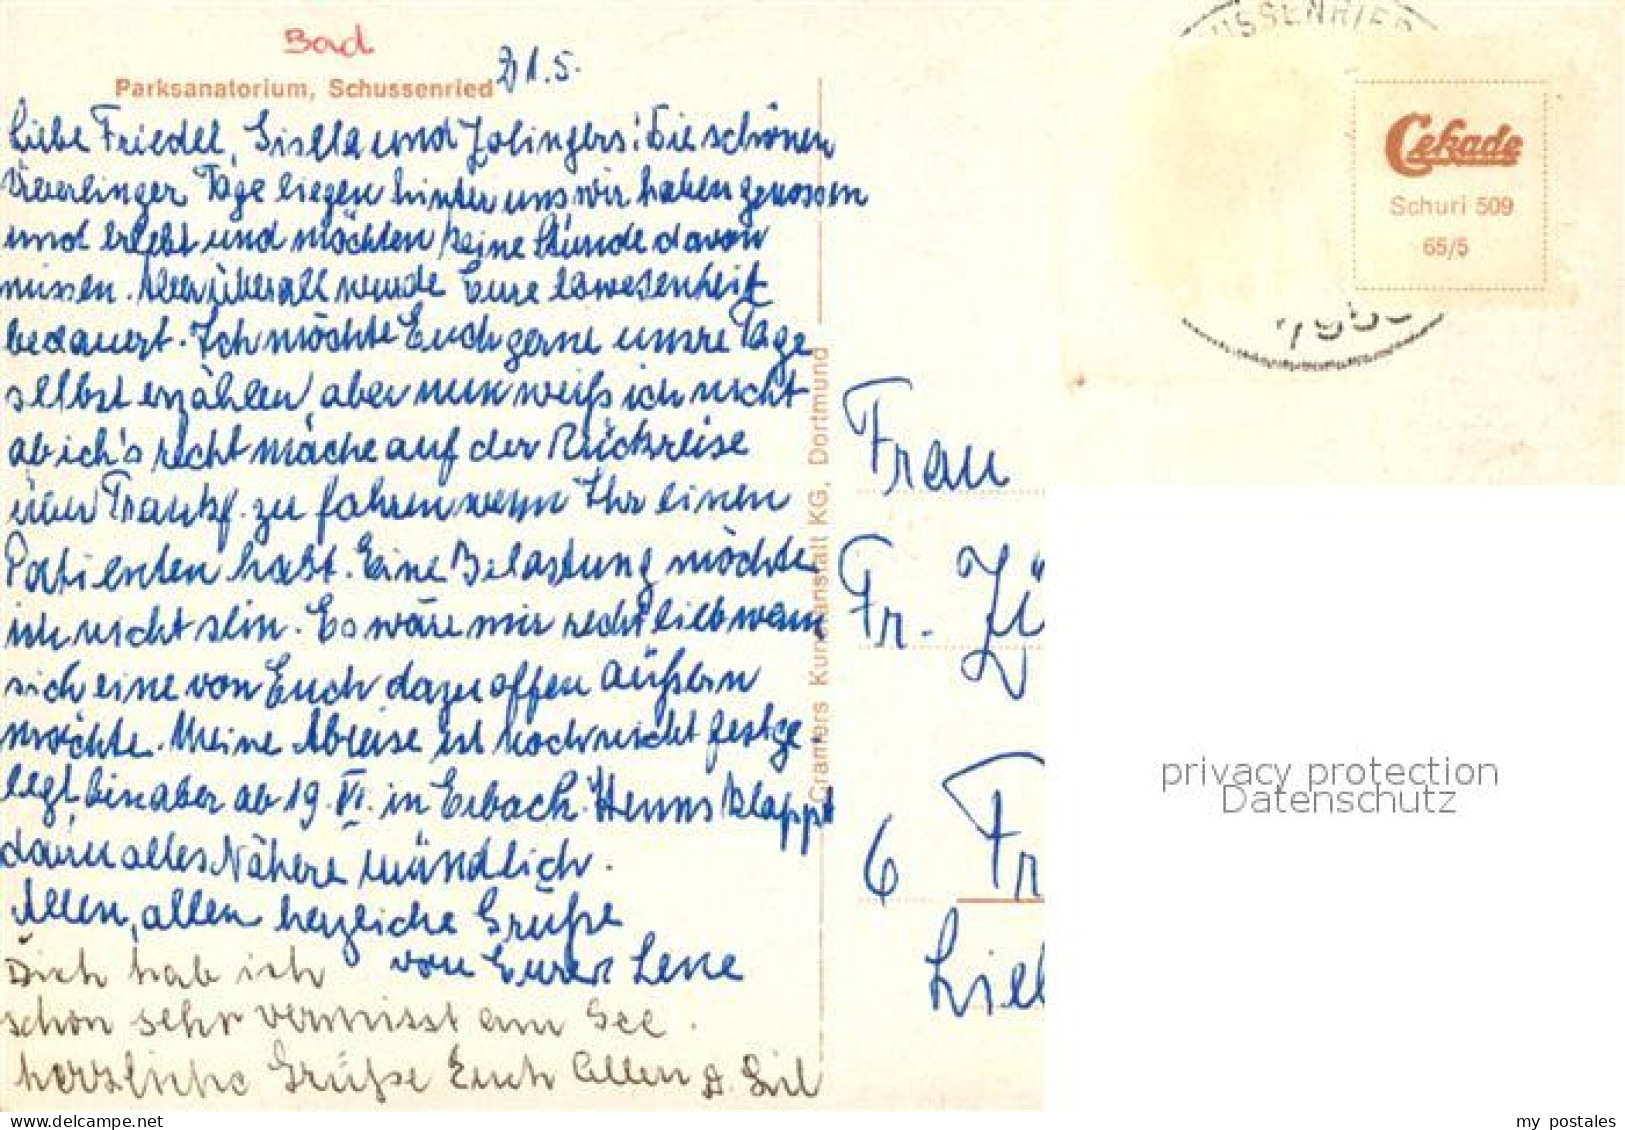 Bad
Parksanatorium, Schussenried
21.5.
Liebe Friedel, Gisella und Zolingers! Die schönen
Überlinger Tage liegen hinter uns wir haben genossen
und erlebt und möchten keine Stunde davon
missen. Aber überall wurde Eure Abwesenheit
bedauert. Ich möchte Euch gerne unsre Tage
selbst erzählen, aber nun weiß ich nicht
ob ich's recht mache auf der Rückreise
über Frankf. zu fahren wenn Ihr einen
Patienten habt. Eine Belastung möchte
ich nicht sein. Es wäre mir recht lieb wenn
sich eine von Euch dazu offen äußern
möchte. Meine Abreise ist noch nicht festge-
legt, bin aber ab 19. VI. in Erbach. Wenns klappt
dann alles Nähere mündlich.
Allen, allen herzliche Grüße
von Eurer Lene
Dich hab ich
schon sehr vermisst am See.
herzliche Grüße Euch Allen
Cramers Kunstanstalt KG, Dortmund
USSENRIED
Cekade
Schuri 509
65/5
Frau
Fr. Zü
6 Fr
Lieb
privacy protection
Datenschutz
my postales